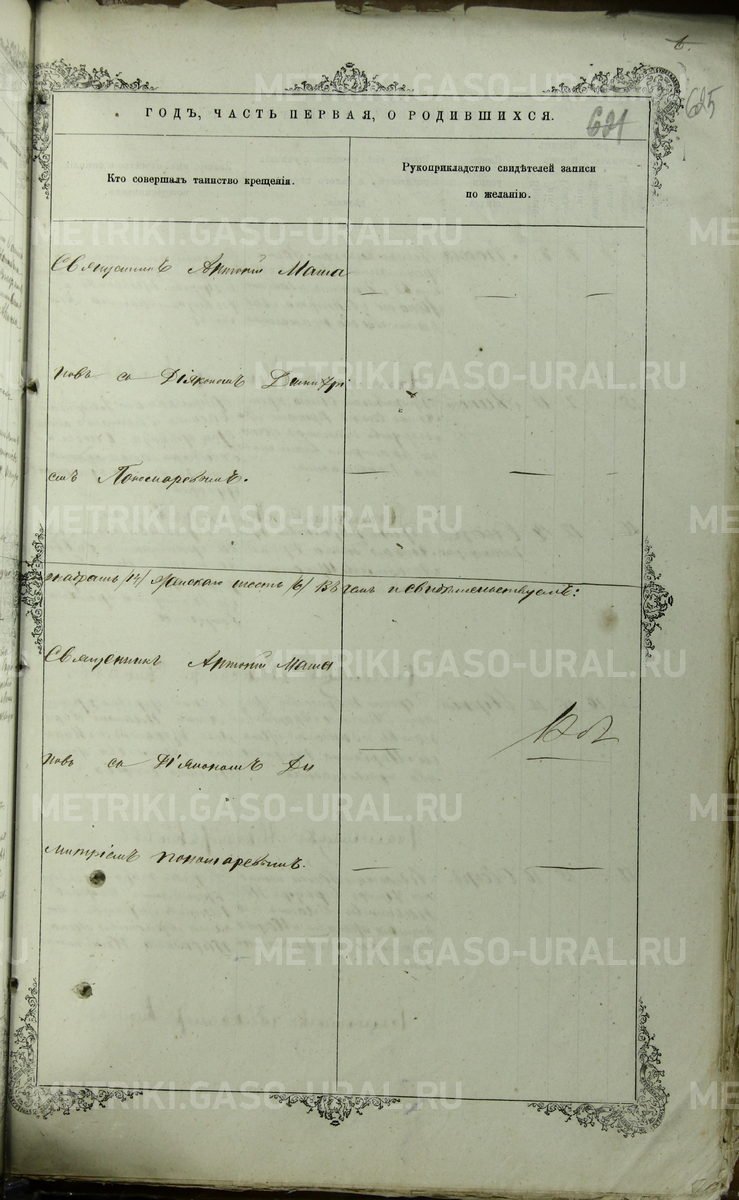 625
621
ГОДЪ, ЧАСТЬ ПЕРВАЯ, О РОДИВШИХСЯ.
Кто совершалъ таинство крещенія.
Рукоприкладство свидѣтелей записи
по желанію.
Священникъ Антоній Маша
новъ съ Діякономъ Димитрі
емъ Пономаревымъ.
женскаго шесть /6/ въ чемъ и свидѣтельствуемъ:
Священникъ Антоній Маша
новъ съ Діякономъ Ди
митріемъ Пономаревымъ.
METRIKI.GASO-URAL.RU